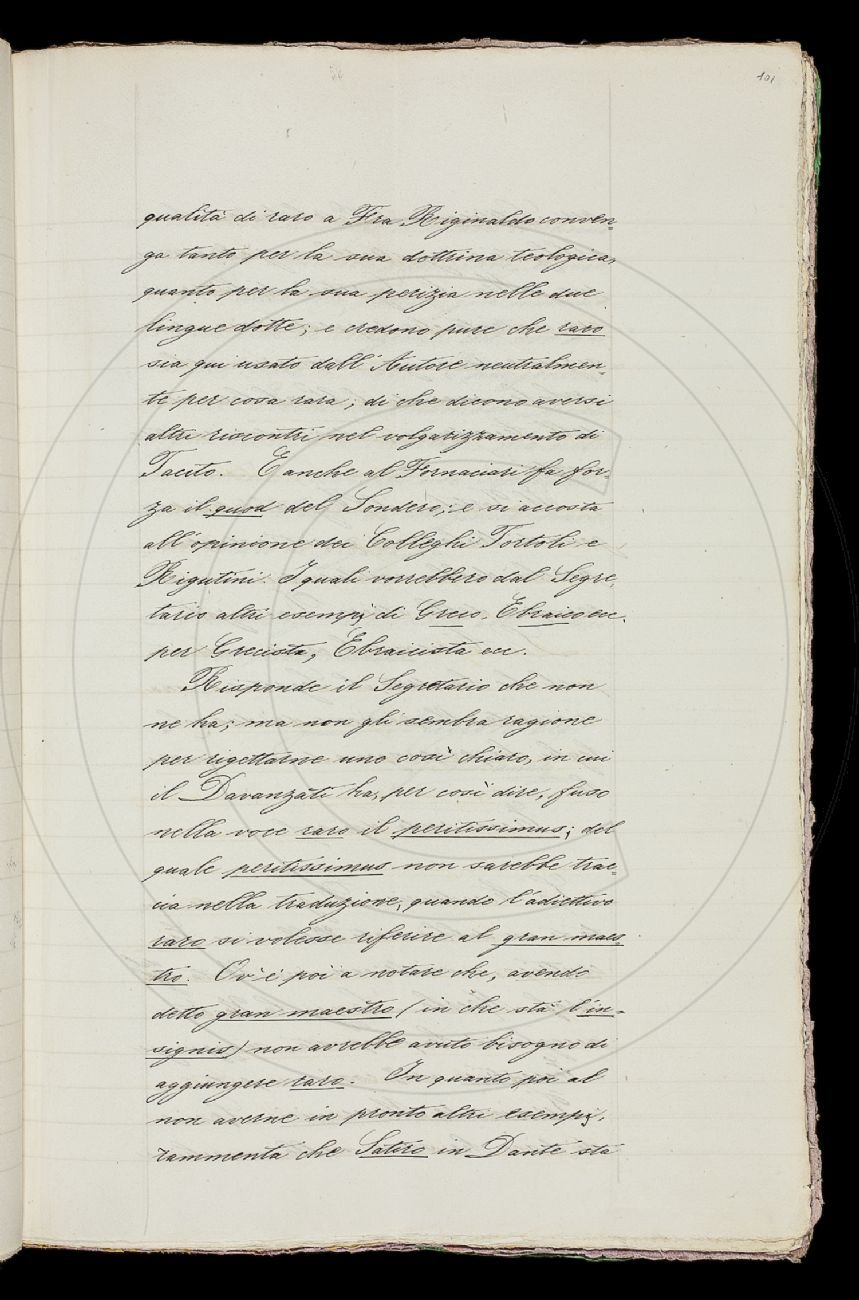 101
qualità di raro a Fra Riginaldo conven=
ga tanto per la sua dottrina teologica,
quanto per la sua perizia nelle due
lingue dotte; e credono pure che raro
sia qui usato dall'Autore neutralmen=
te per cosa rara; di che dicono aversi
altri riscontri nel volgarizzamento di
Tacito. E anche al Fornaciari fa for=
za il quod del Sondero; e si accosta
all'opinione dei Colleghi Tortoli e
Rigutini. I quali vorrebbero dal Segre=
tario altri esempj di Greco, Ebraico ecc.
per Grecista, Ebraicista ecc.
Risponde il Segretario che non
ne ha; ma non gli sembra ragione
per rigettarne uno così chiaro, in cui
il Davanzati ha, per così dire, fuso
nella voce raro il peritissimus; del
quale peritissimus non sarebbe trac=
cia nella traduzione, quando l'adiettivo
raro si volesse riferire al gran maes=
tro. Ov'è poi a notare che, avendo
detto gran maestro (in che sta l'in=
signis) non avrebbe avuto bisogno di
aggiungere raro. In quanto poi al
non averne in pronto altri esempj,
rammenta che Satiro in Dante sta